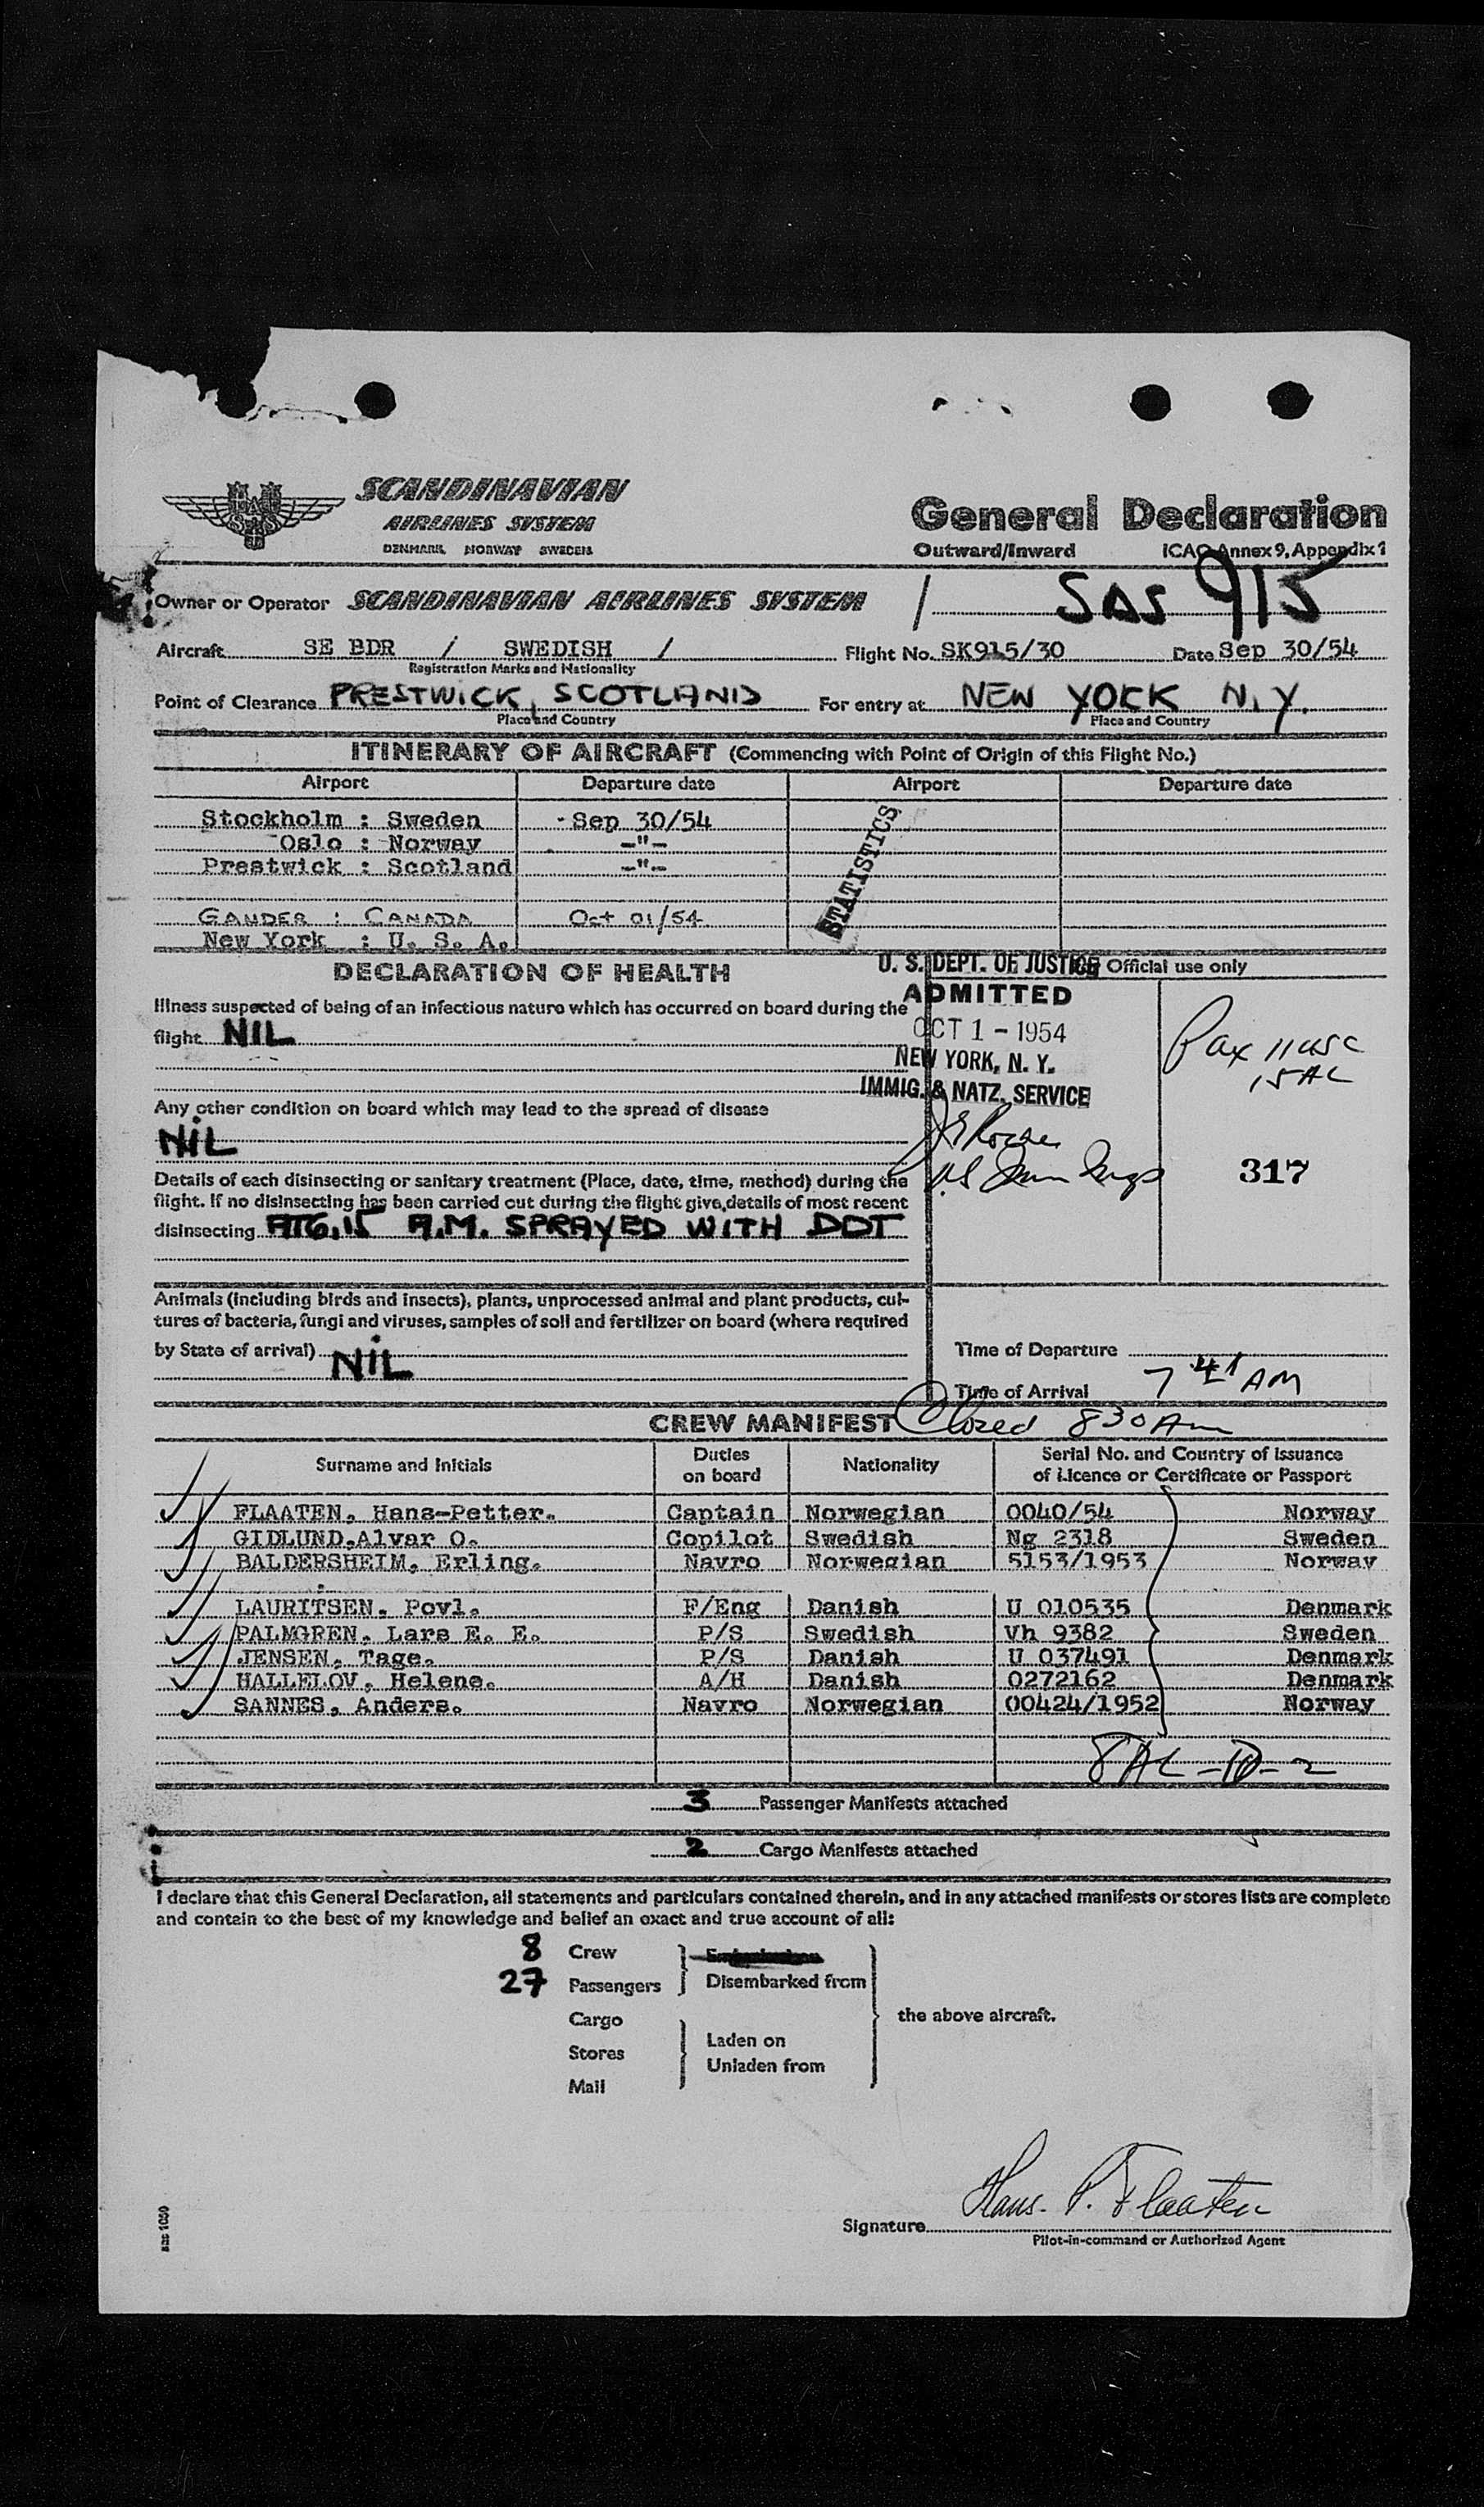 SCANDINAVIAN
AIRLINES SYSTEM
DENMARK NORWAY SWEDEN
General Declaration
Outward/Inward ICAO Annex 9, Appendix 1
SAS 915
Owner or Operator SCANDINAVIAN AIRLINES SYSTEM
Aircraft SE BDR / SWEDISH / Flight No. SK915/30 Date Sep 30/54
Registration Marks and Nationality
Point of Clearance PRESTWICK, SCOTLAND For entry at NEW YORK N.Y.
Place and Country Place and Country
ITINERARY OF AIRCRAFT (Commencing with Point of Origin of this Flight No.)
Airport Departure date Airport Departure date
Stockholm : Sweden Sep 30/54
Oslo : Norway -"-
Prestwick : Scotland -"-
GANDER : CANADA Oct 01/54
New York : U. S. A.
STATISTICS
DECLARATION OF HEALTH
Illness suspected of being of an infectious nature which has occurred on board during the
flight NIL
Any other condition on board which may lead to the spread of disease
NIL
Details of each disinsecting or sanitary treatment (Place, date, time, method) during the
flight. If no disinsecting has been carried out during the flight give details of most recent
disinsecting AT 6.15 A.M. SPRAYED WITH DDT
Animals (including birds and insects), plants, unprocessed animal and plant products, cul-
tures of bacteria, fungi and viruses, samples of soil and fertilizer on board (where required
by State of arrival) NIL
Official use only
U. S. DEPT. OF JUSTICE
ADMITTED
OCT 1 - 1954
NEW YORK, N. Y.
IMMIG. & NATZ. SERVICE
Pax 11 USC
15 AL
317
Time of Departure
Time of Arrival 7 41 AM
Closed 8 30 Am
CREW MANIFEST
Surname and Initials Duties on board Nationality Serial No. and Country of Issuance of Licence or Certificate or Passport
FLAATEN, Hans-Petter. Captain Norwegian 0040/54 Norway
GIDLUND,Alvar O. Copilot Swedish Ng 2318 Sweden
BALDERSHEIM, Erling. Navro Norwegian 5153/1953 Norway
LAURITSEN, Povl. F/Eng Danish U 010535 Denmark
PALMGREN, Lars E. E. P/S Swedish Vh 9382 Sweden
JENSEN, Tage. P/S Danish U 037491 Denmark
HALLELOV, Helene. A/H Danish 0272162 Denmark
SANNES, Anders. Navro Norwegian 00424/1952 Norway
8 AL - D - 2
3 Passenger Manifests attached
2 Cargo Manifests attached
I declare that this General Declaration, all statements and particulars contained therein, and in any attached manifests or stores lists are complete
and contain to the best of my knowledge and belief an exact and true account of all:
8 Crew
27 Passengers Disembarked from
Cargo the above aircraft.
Stores Laden on
Unladen from
Mail
Hans. P. Flaaten
Signature
Pilot-in-command or Authorized Agent
sas 1050